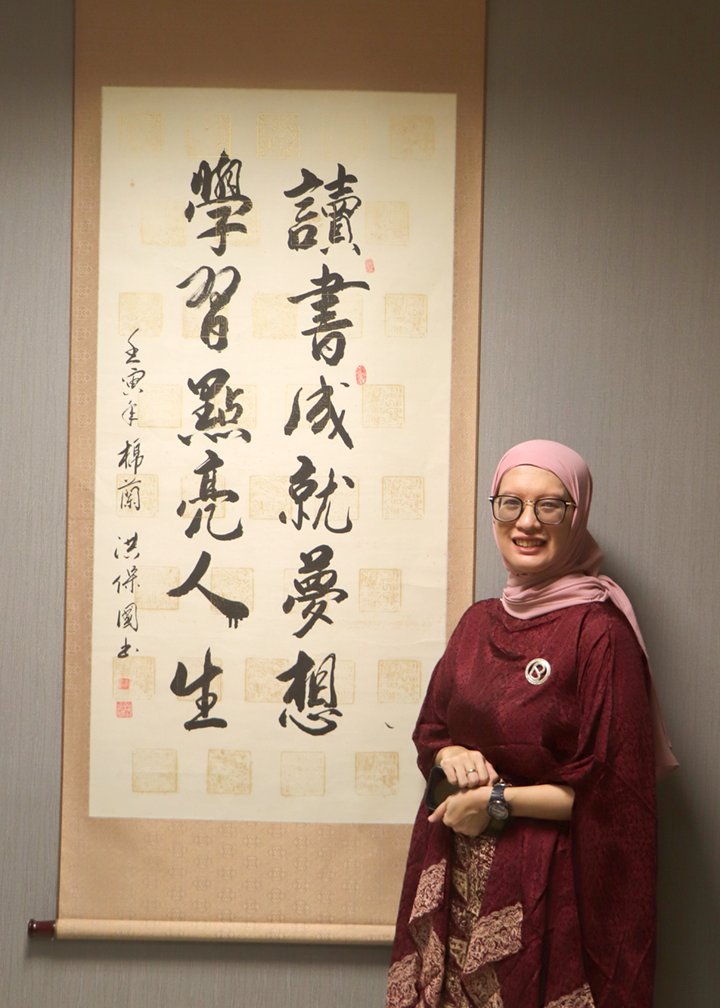 讀書成就夢想
學習點亮人生
壬寅年棉蘭洪保國书